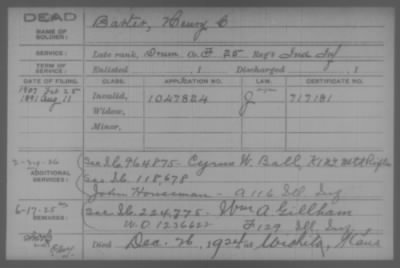 DEAD
NAME OF SOLDIER: Baxter, Henry C
SERVICE: Late rank, Drum. Co. F 25 Reg't Ind Inf
TERM OF SERVICE: Enlisted , 1 Discharged , 1
DATE OF FILING. CLASS. APPLICATION NO. LAW. CERTIFICATE NO.
1907 Feb 25
1891 Aug 11 Invalid, 1047824 J 717181
Widow,
Minor,
ADDITIONAL SERVICES: See I.C. 964875- Cyrus W. Ball,
See I.C. 118,678
John Houseman - A 116 Ill. Inf
6-17-25
REMARKS: See I.C. 224,775- Wm A Gillham
W.O 1236622 F 129 Ill. Inf
Died Dec. 26, 1924 at Wichita, Kans